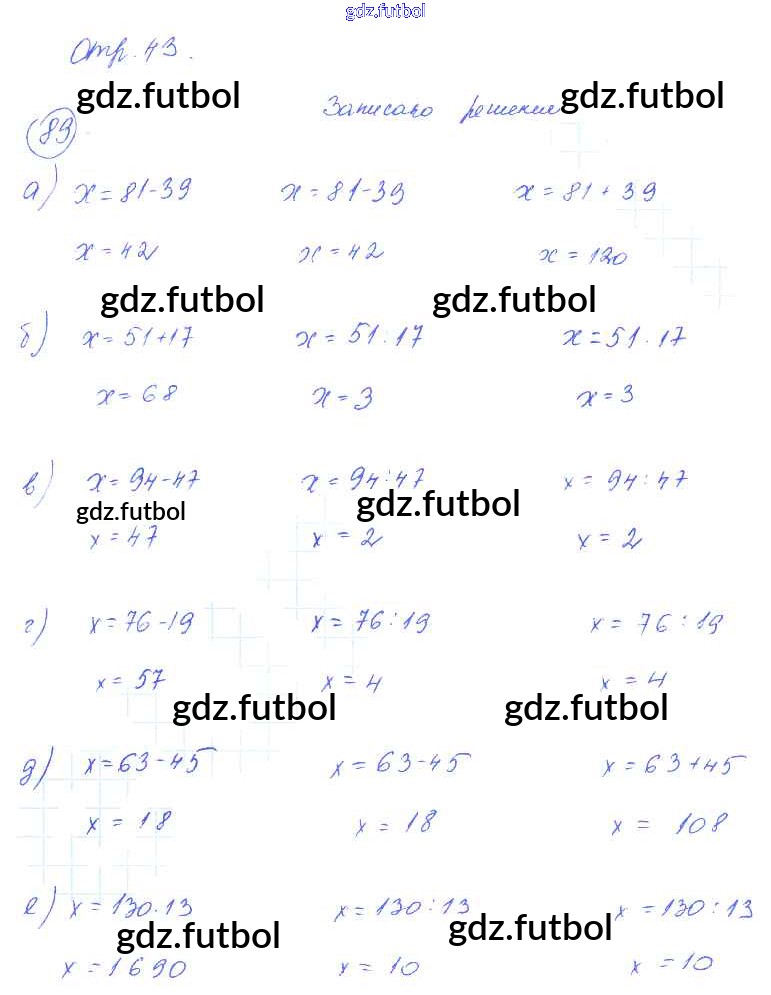 gdz.futbol
Стр. 43.
gdz.futbol Записано решение gdz.futbol
89
а) x = 81 - 39 x = 81 - 39 x = 81 + 39
x = 42 x = 42 x = 120
gdz.futbol gdz.futbol
б) x = 51 + 17 x = 51 : 17 x = 51 : 17
x = 68 x = 3 x = 3
в) x = 94 - 47 x = 94 : 47 x = 94 : 47
gdz.futbol gdz.futbol
x = 47 x = 2 x = 2
г) x = 76 - 19 x = 76 : 19 x = 76 : 19
x = 57 x = 4 x = 4
gdz.futbol gdz.futbol
д) x = 63 - 45 x = 63 - 45 x = 63 + 45
x = 18 x = 18 x = 108
е) x = 130 · 13 x = 130 : 13 x = 130 : 13
gdz.futbol gdz.futbol
x = 1690 x = 10 x = 10